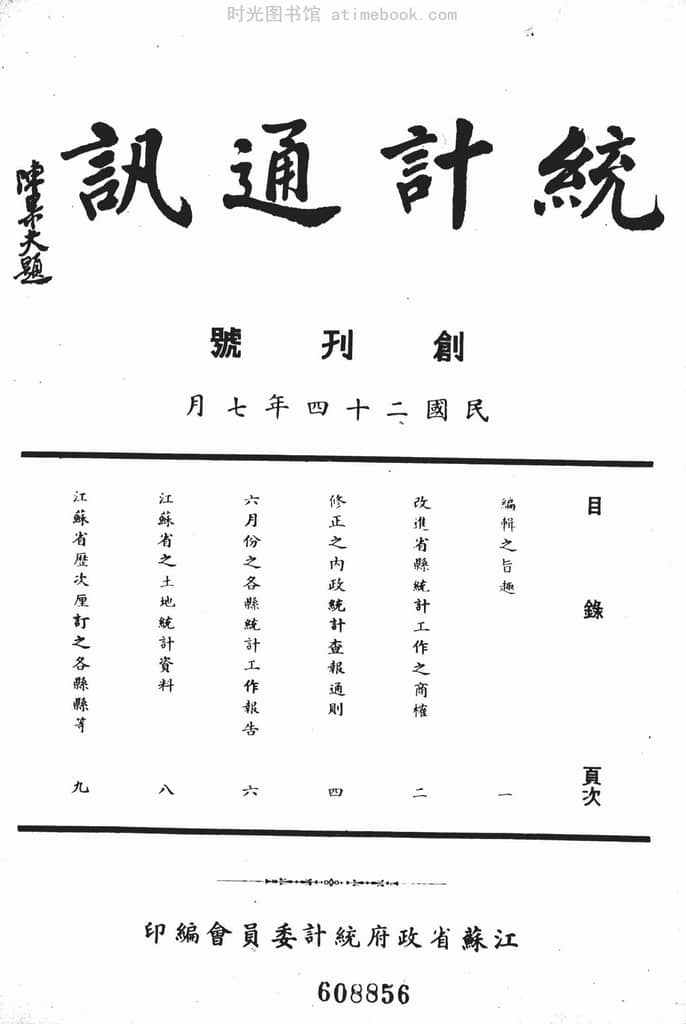 时光图书馆 atimebook.com
統計通訊
陳果夫題
創刊號
民國二十四年七月
目錄 頁次
編輯之旨趣 一
改進省縣統計工作之商榷 二
修正之內政統計查報通則 四
六月份之各縣統計工作報告 六
江蘇省之土地統計資料 八
江蘇省歷次厘訂之各縣縣等 九
江蘇省政府統計委員會編印
608856